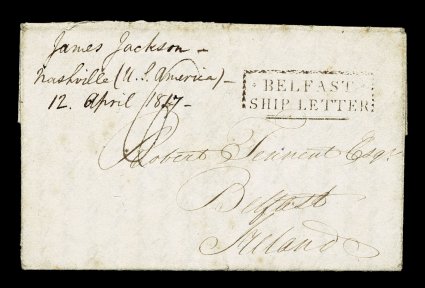 James Jackson -
Nashville (U. S. America) -
12. April 1817 -
BELFAST
SHIP LETTER
Robert Tennent Esqr.
Belfast
Ireland